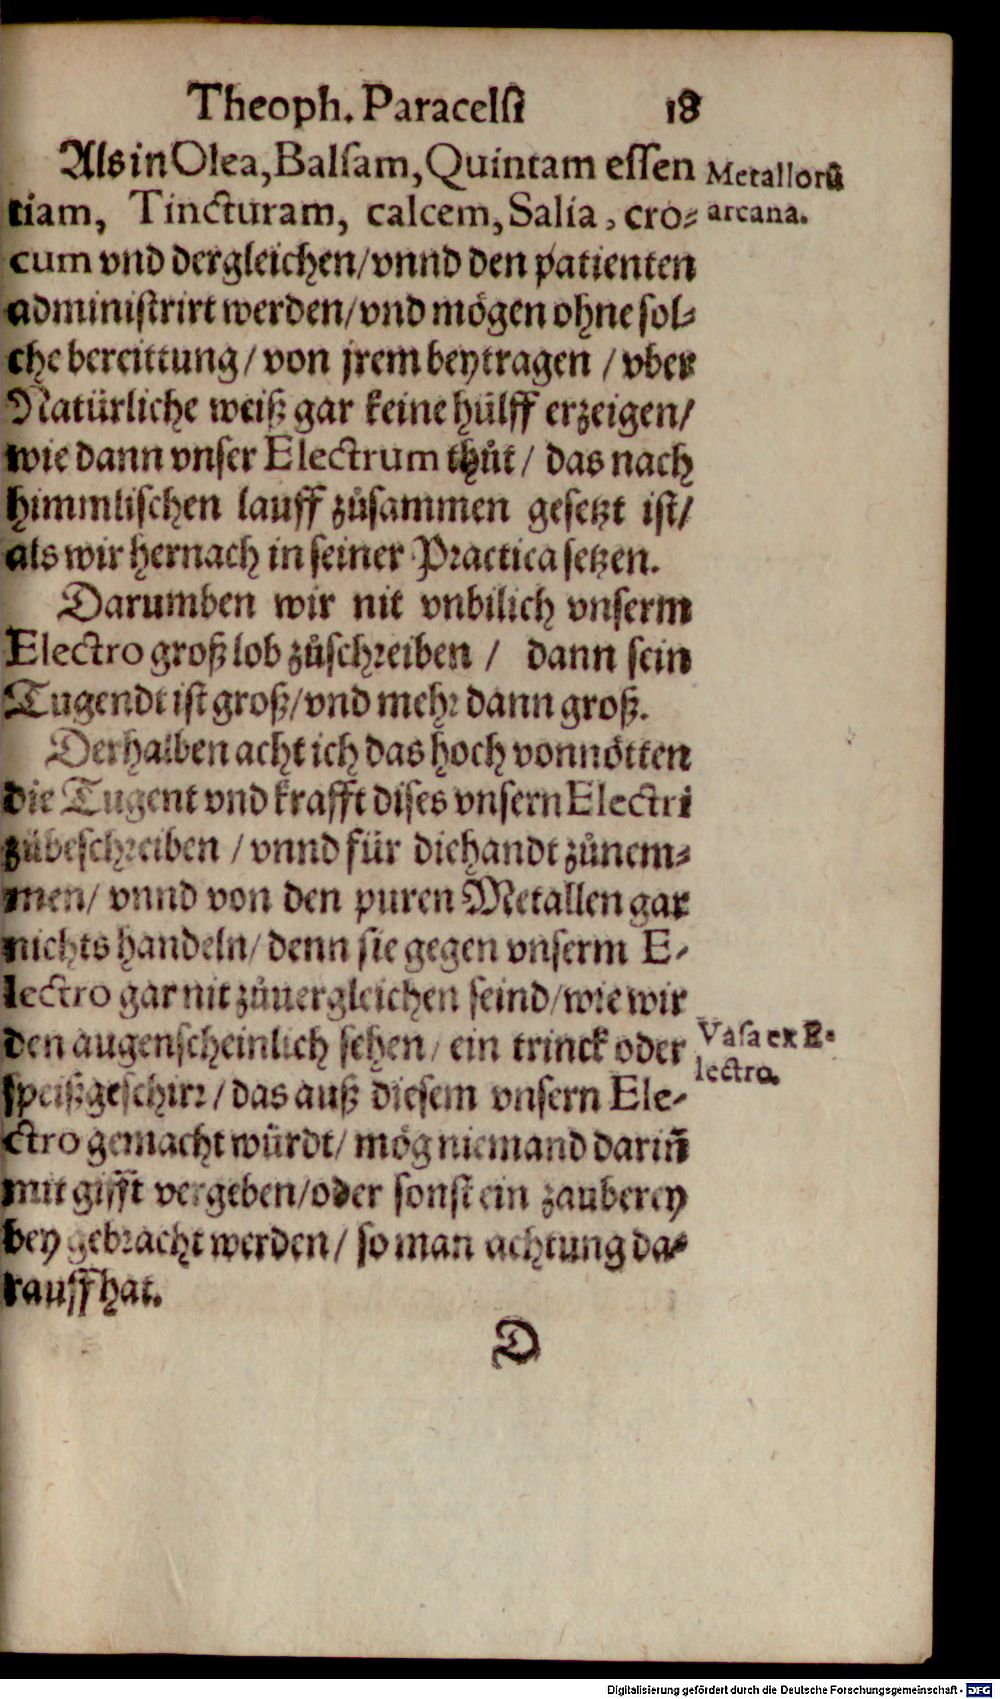 Theoph. Paracelsi 18
Als in Olea, Balsam, Quintam essen
tiam, Tincturam, calcem, Salia, cro-
cum vnd dergleichen/vnnd den patienten
administrirt werden/vnd mögen ohne sol-
che bereittung/von jrem beytragen/vber
Natürliche weiß gar keine hülff erzeigen/
wie dann vnser Electrum thůt/das nach
himmlischen lauff zůsammen gesetzt ist/
als wir hernach in seiner Practica setzen.
Metallorũ
arcana.
Darumben wir nit vnbilich vnserm
Electro groß lob zůschreiben/ dann sein
Tugendt ist groß/vnd mehr dann groß.
Derhalben acht ich das hoch vonnötten
die Tugent vnd krafft dises vnsern Electri
zůbeschreiben/vnnd für die handt zůnem-
men/vnnd von den puren Metallen gar
nichts handeln/denn sie gegen vnserm E-
lectro gar nit zůuergleichen seind/wie wir
den augenscheinlich sehen/ein trinck oder
speißgeschirr/das auß diesem vnsern Ele-
ctro gemacht würdt/mög niemand dariñ
mit gifft vergeben/oder sonst ein zauberey
bey gebracht werden/so man achtung da-
rauff hat.
Vasa ex E-
lectro.
D
Digitalisierung gefördert durch die Deutsche Forschungsgemeinschaft - DFG